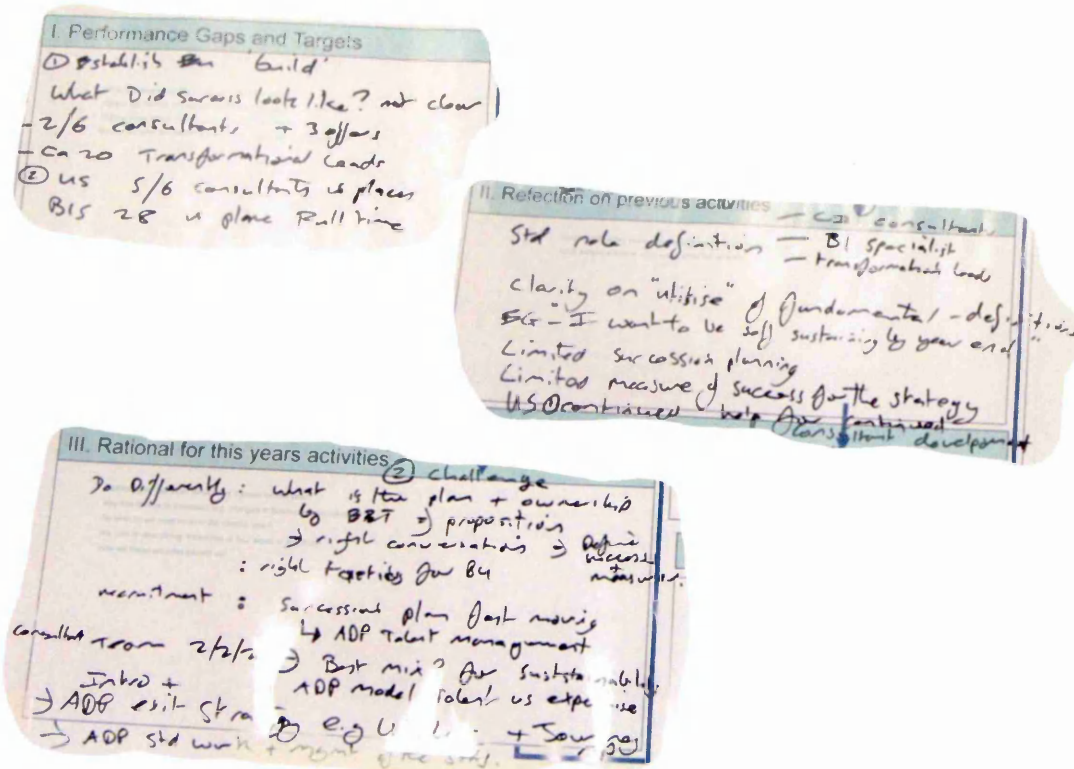 I. Performance Gaps and Targets
① Establish 'build'
What Did Success look like? not clear
- 2/6 consultants + 3 offers
- Ca 20 Transformational Leads
② US 5/6 consultants in place
BIS 28 in place Full time
II. Relection on previous activities
- CI consultant
Std role definition - BI specialist
- transformation leads
Clarity on "utilise" of fundamental - definitions
EG - "I want to be self sustaining by year end"
Limited succession planning
Limited measure of success for the strategy
US ① continued help for continued
consultant development
III. Rational for this years activities
② challenge
Do Differently: what is the plan + ownership
by → proposition
→ right conversations → Define
success
+
measures.
: right for BU
recruitment : Succession plan fast moving
↳ ADP Talent Management
consultant Team 2/2/2 → Best mix? for
Intro + ADP model talent vs expertise
→ ADP exit e.g + Journey
→ ADP Std work + mgmt of the